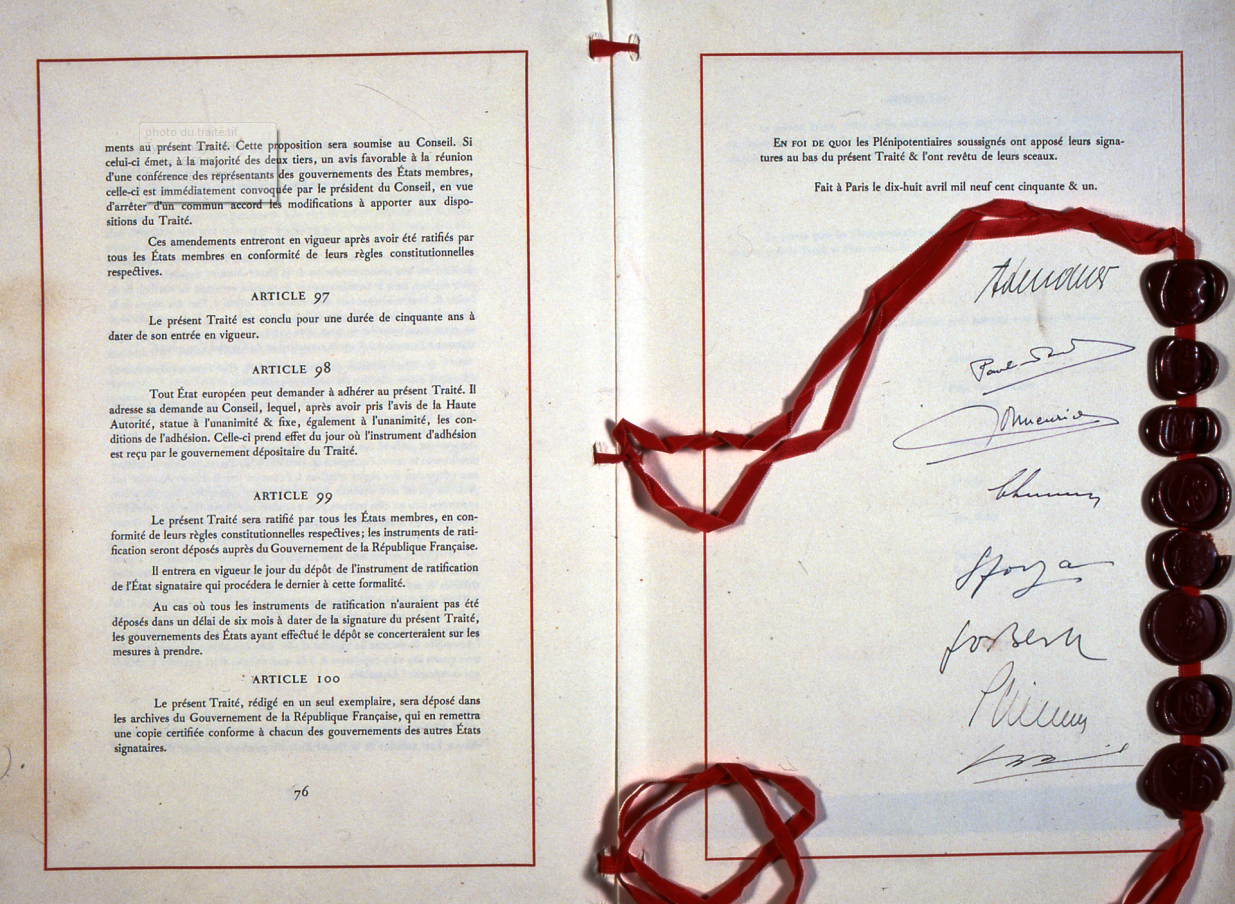 photo du traité.tif
ments au présent Traité. Cette proposition sera soumise au Conseil. Si
celui-ci émet, à la majorité des deux tiers, un avis favorable à la réunion
d'une conférence des représentants des gouvernements des États membres,
celle-ci est immédiatement convoquée par le président du Conseil, en vue
d'arrêter d'un commun accord les modifications à apporter aux dispo-
sitions du Traité.
Ces amendements entreront en vigueur après avoir été ratifiés par
tous les États membres en conformité de leurs règles constitutionnelles
respectives.
ARTICLE 97
Le présent Traité est conclu pour une durée de cinquante ans à
dater de son entrée en vigueur.
ARTICLE 98
Tout État européen peut demander à adhérer au présent Traité. Il
adresse sa demande au Conseil, lequel, après avoir pris l'avis de la Haute
Autorité, statue à l'unanimité & fixe, également à l'unanimité, les con-
ditions de l'adhésion. Celle-ci prend effet du jour où l'instrument d'adhésion
est reçu par le gouvernement dépositaire du Traité.
ARTICLE 99
Le présent Traité sera ratifié par tous les États membres, en con-
formité de leurs règles constitutionnelles respectives; les instruments de rati-
fication seront déposés auprès du Gouvernement de la République Française.
Il entrera en vigueur le jour du dépôt de l'instrument de ratification
de l'État signataire qui procédera le dernier à cette formalité.
Au cas où tous les instruments de ratification n'auraient pas été
déposés dans un délai de six mois à dater de la signature du présent Traité,
les gouvernements des États ayant effectué le dépôt se concerteraient sur les
mesures à prendre.
ARTICLE 100
Le présent Traité, rédigé en un seul exemplaire, sera déposé dans
les archives du Gouvernement de la République Française, qui en remettra
une copie certifiée conforme à chacun des gouvernements des autres États
signataires.
76
EN FOI DE QUOI les Plénipotentiaires soussignés ont apposé leurs signa-
tures au bas du présent Traité & l'ont revêtu de leurs sceaux.
Fait à Paris le dix-huit avril mil neuf cent cinquante & un.
Adenauer
Sforza